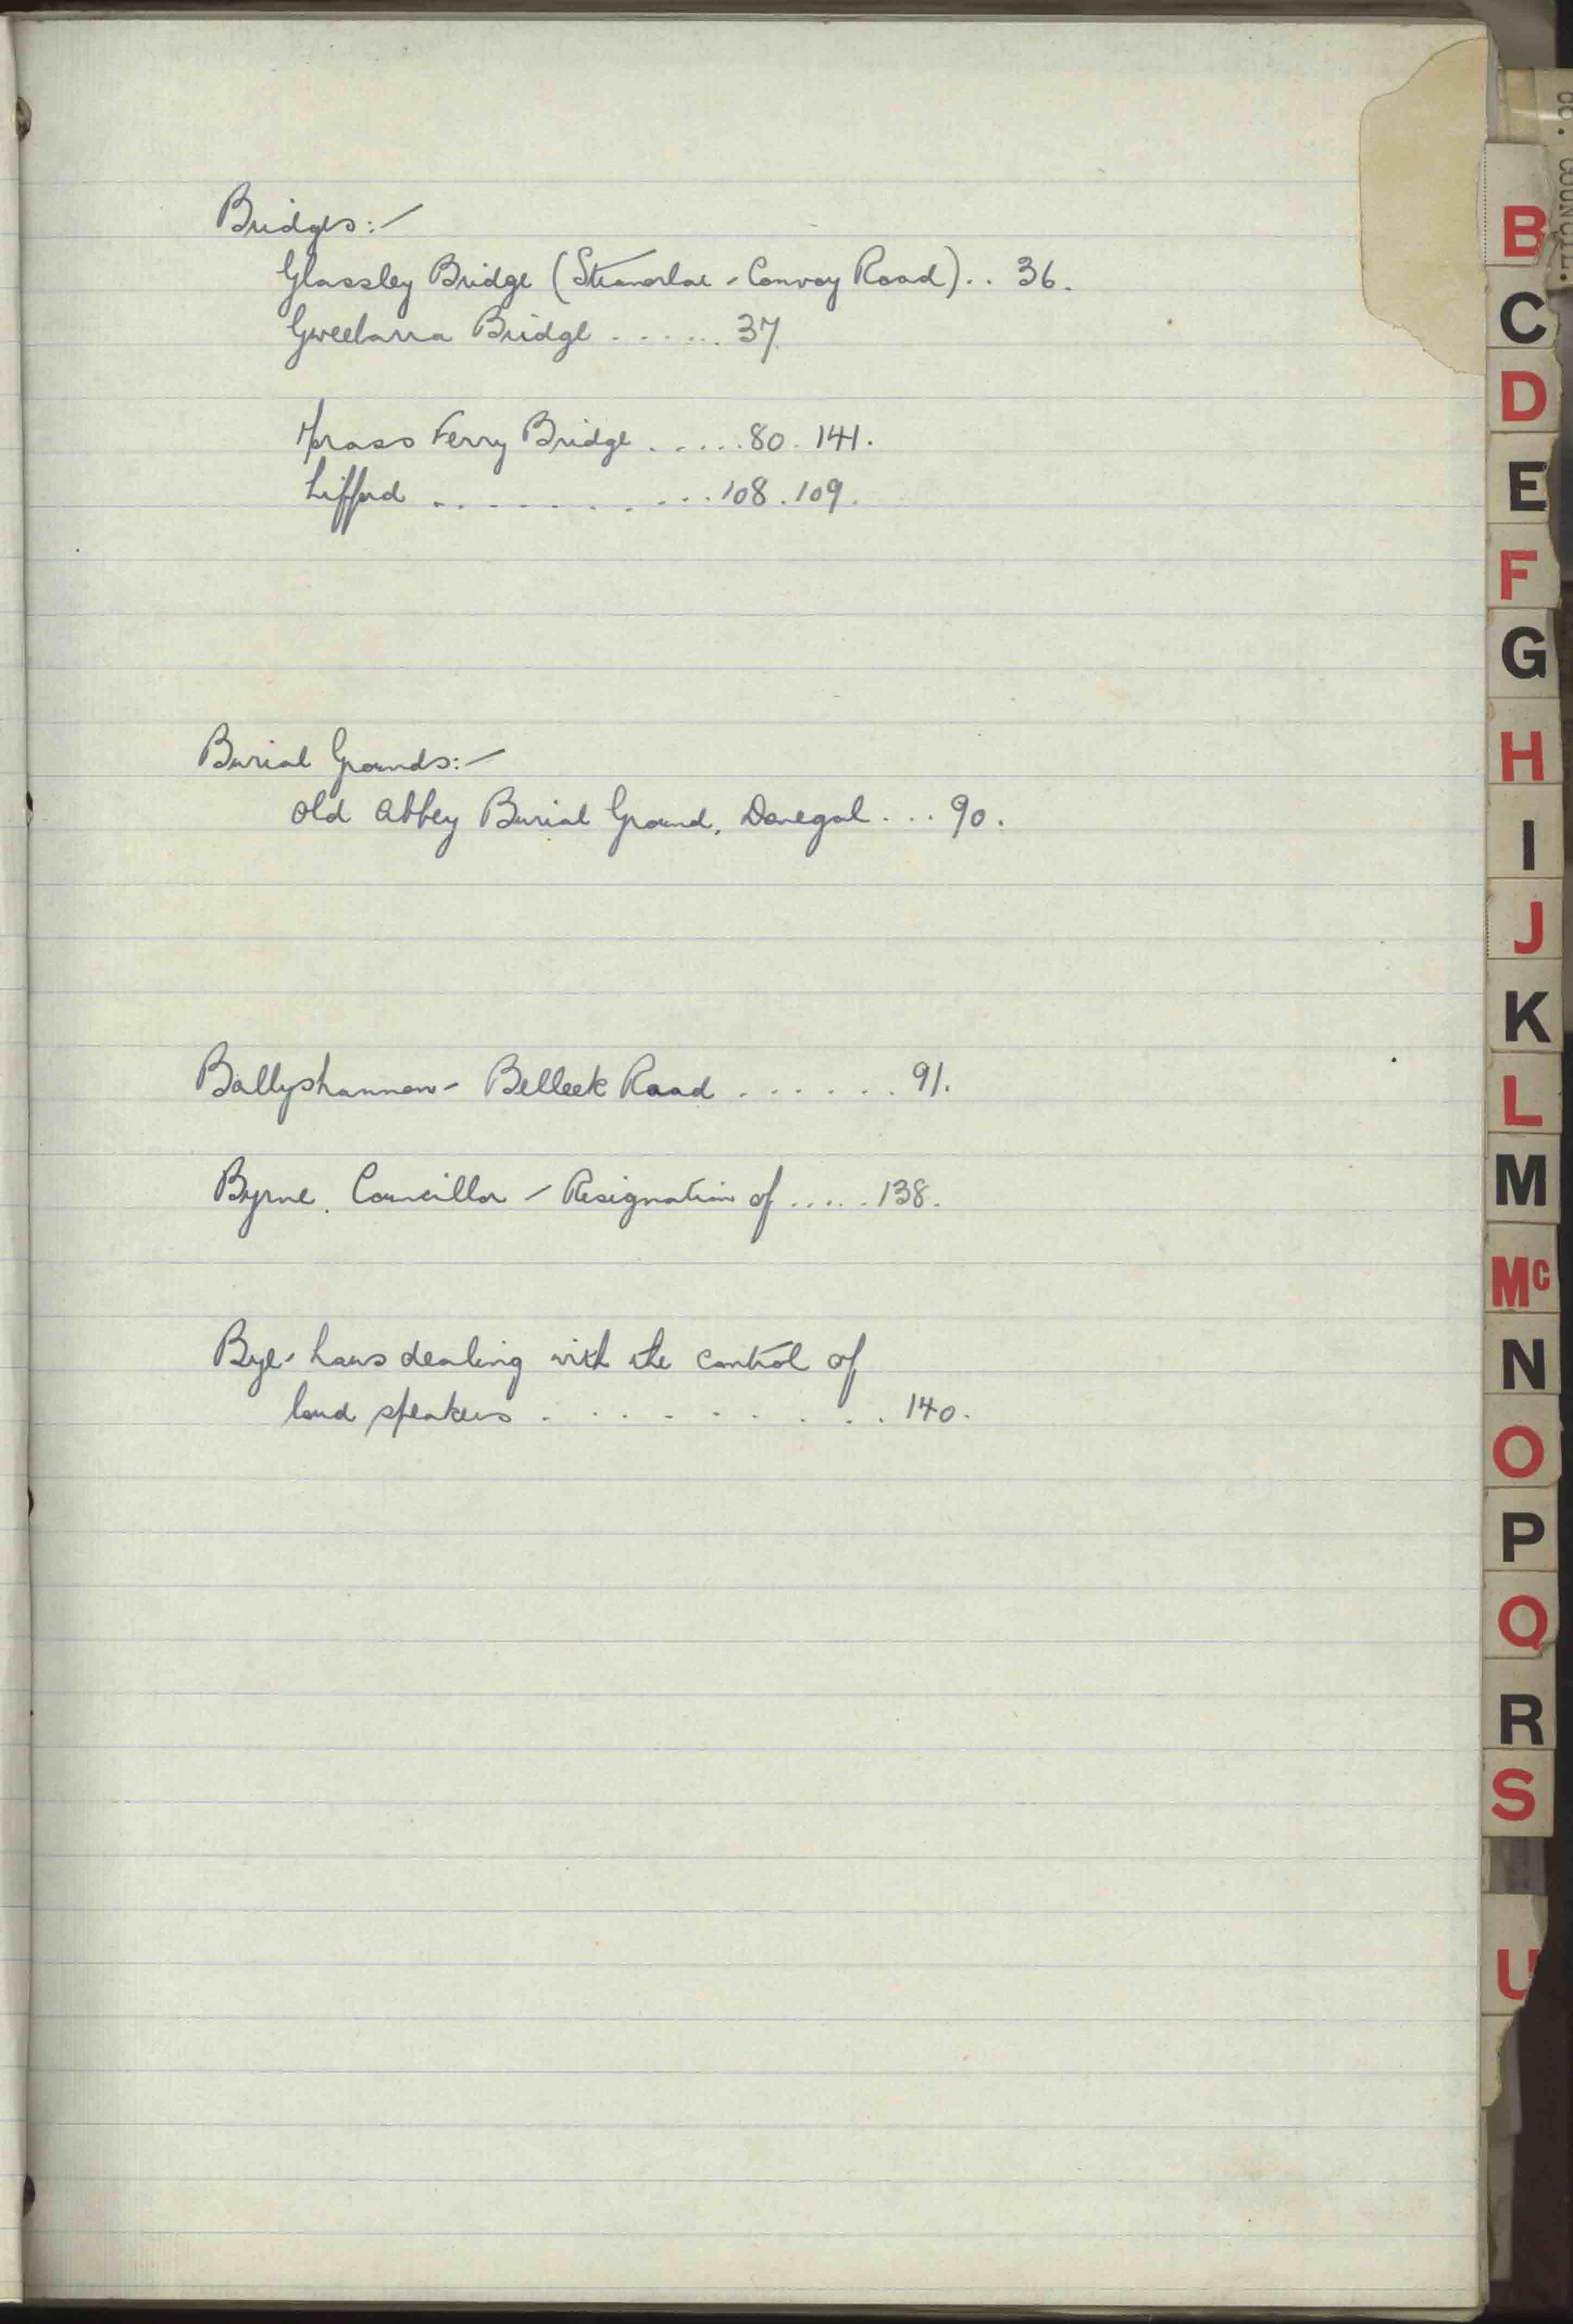 Bridges:-
Glassley Bridge (Stranorlar - Convoy Road) .. 36.
Gweebarra Bridge ...... 37
Moross Ferry Bridge ..... 80. 141.
Lifford ........... 108. 109.
Burial Grounds:-
Old Abbey Burial Ground, Donegal ... 90.
Ballyshannon - Belleek Road ...... 91.
Byrne, Councillor - Resignation of ..... 138.
Bye-Laws dealing with the control of
loud speakers .......... 140.
CO. COUNCIL.
B
C
D
E
F
G
H
I
J
K
L
M
Mc
N
O
P
Q
R
S
U